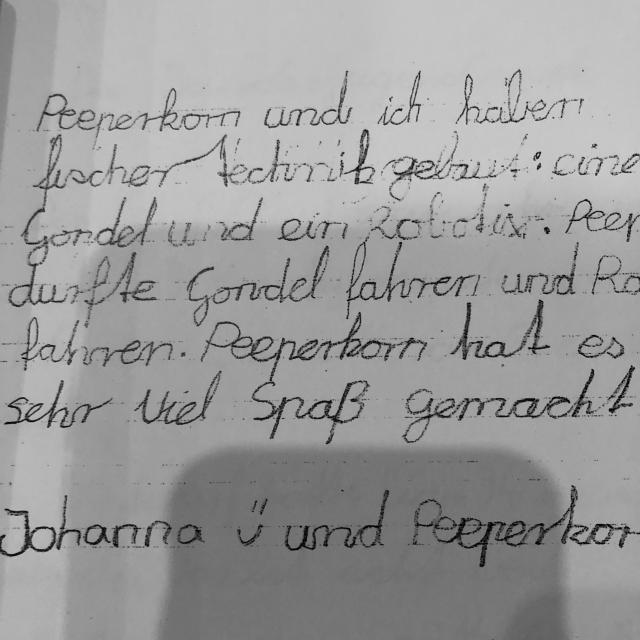 Peeperkorn und ich haben
fischer technik gebaut: eine
Gondel und ein Robotix. Peep
durfte Gondel fahren und Ro
fahren. Peeperkorn hat es
sehr viel Spaß gemacht
Johanna ü und Peeperkor